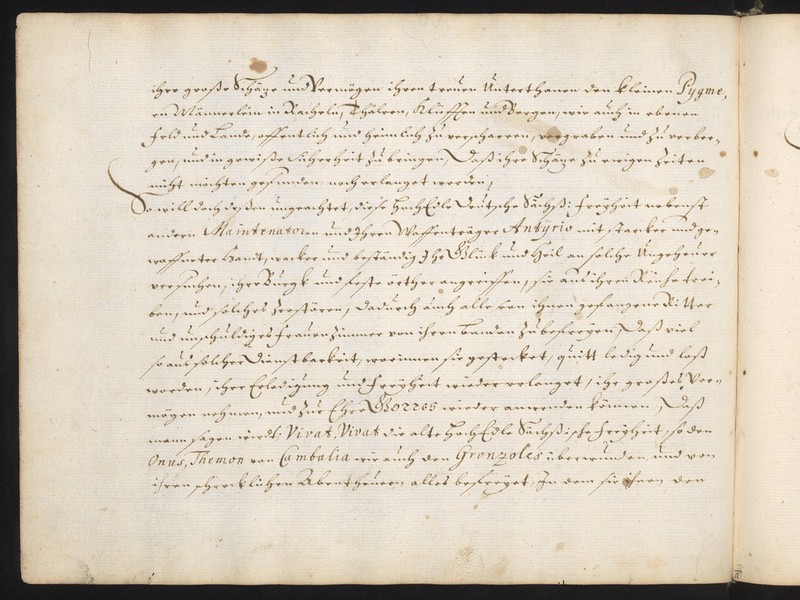 ihre große Schäze und Vermögen ihren treuen Unterthanen den kleinen Pygme,
en Männerlein in Kacheln, Thälern, Klüfften und Bergen, wie auch in ebenen
Feld und Lande, offentlich und heimlich zu verscharren, vergraben und zu verber¬
gen, und in gewiße Sicherheit zu bringen, Daß ihre Schäze zu ewigen Zeiten
nicht möchten gefunden noch erlanget werden,
So will doch deßen ungeachtet, diese HochEdle Deutsche Sächß: Freyheit nebenst
andern Maintenatoren und Ihren Waffenträger Antyrio mit starcker und ge¬
waffneter Handt, wacker und beständig Ihr Glück und Heil an solche Ungeheuer
versuchen, ihre Burgk und feste örther angreiffen, sie aus ihren Reiche trei¬
ben, und solches zerstören, Dadurch auch alle von ihnen gefangene Ritter
und unschuldiges Frauenzimmer von ihren banden zubefreyen, Daß viel
so aus solcher Dienstbarkeit, worinnen sie gestecket, quitt ledig und loß
worden, ihre Erledigung und Freyheit wieder erlanget, ihr großes Ver¬
mögen nehmen, und zur Ehre Gottes wieder anwenden können, Daß
mann sagen wird: Vivat, Vivat die alte HochEdle Sächßische Freyheit, so den
Onus, Themon von Cambalia wie auch den Gronzoles überwunden, und von
ihren schrecklichen Abentheuern alles befreyet, In dem sie ihnen den